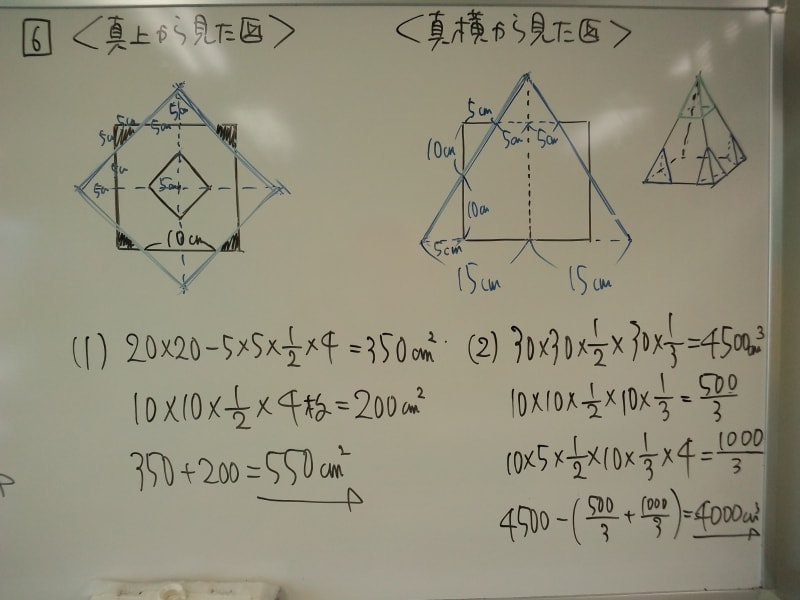 6 <真上から見た図>
<真横から見た図>
5cm
5cm 5cm
5cm
5cm
5cm
5cm
10cm
5cm
5cm 5cm
10cm
10cm
5cm
15cm 15cm
(1) 20×20-5×5×1/2×4=350cm²
10×10×1/2×4枚=200cm²
350+200=550cm²
(2) 30×30×1/2×30×1/3=4500cm³
10×10×1/2×10×1/3=500/3
10×5×1/2×10×1/3×4=1000/3
4500-(500/3+1000/3)=4000cm³